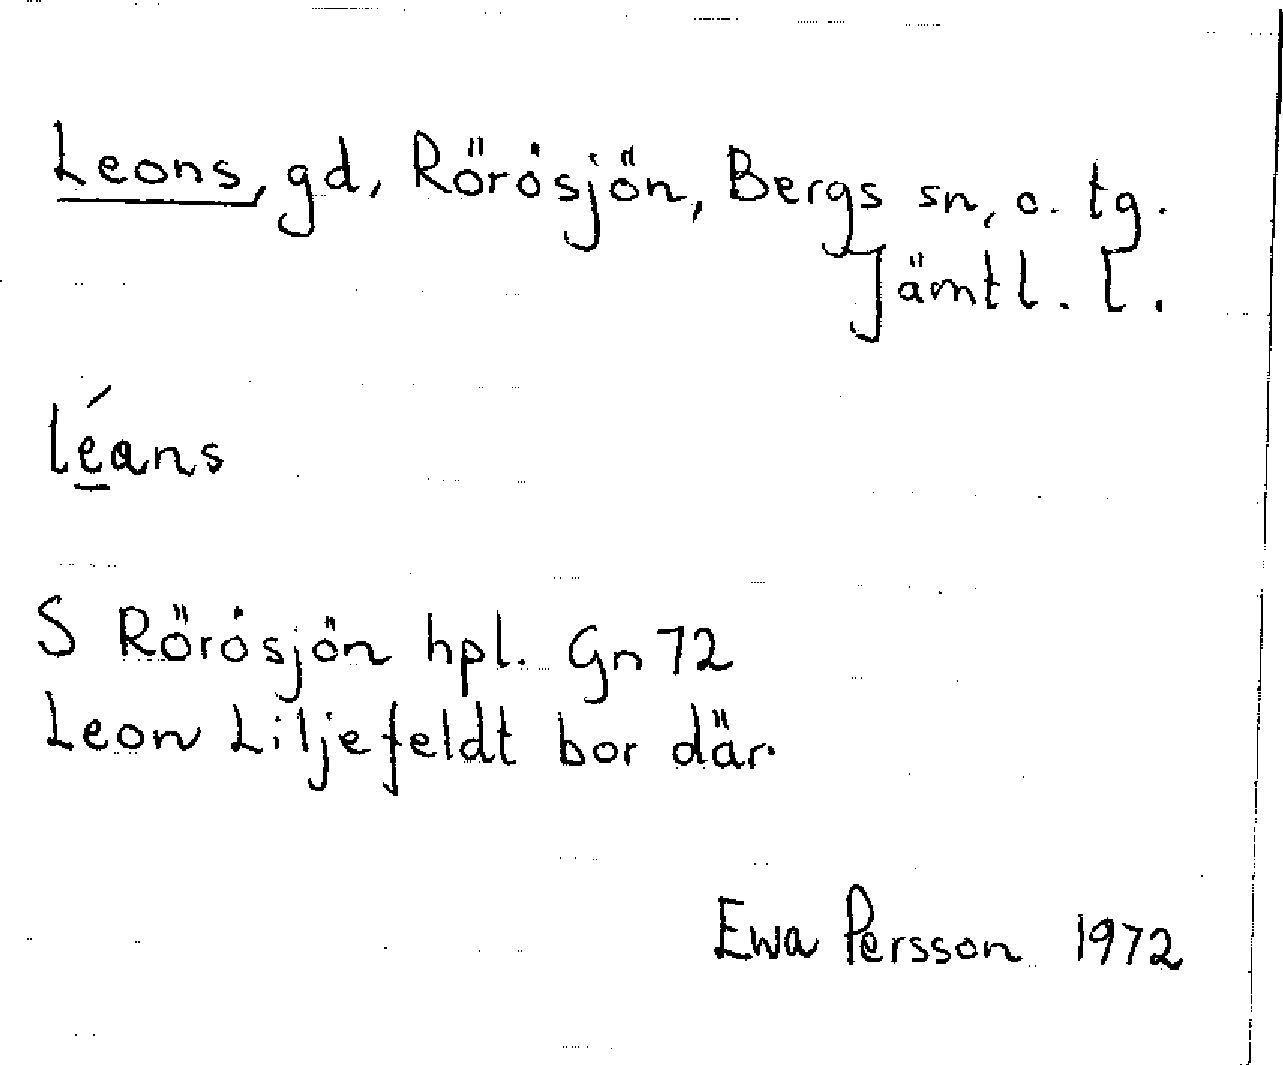 Leons, gd, Rörösjön, Bergs sn, o. tg.
Jämtl. l.
léans
S Rörösjön hpl. Gn 72
Leon Liljefeldt bor där.
Ewa Persson 1972